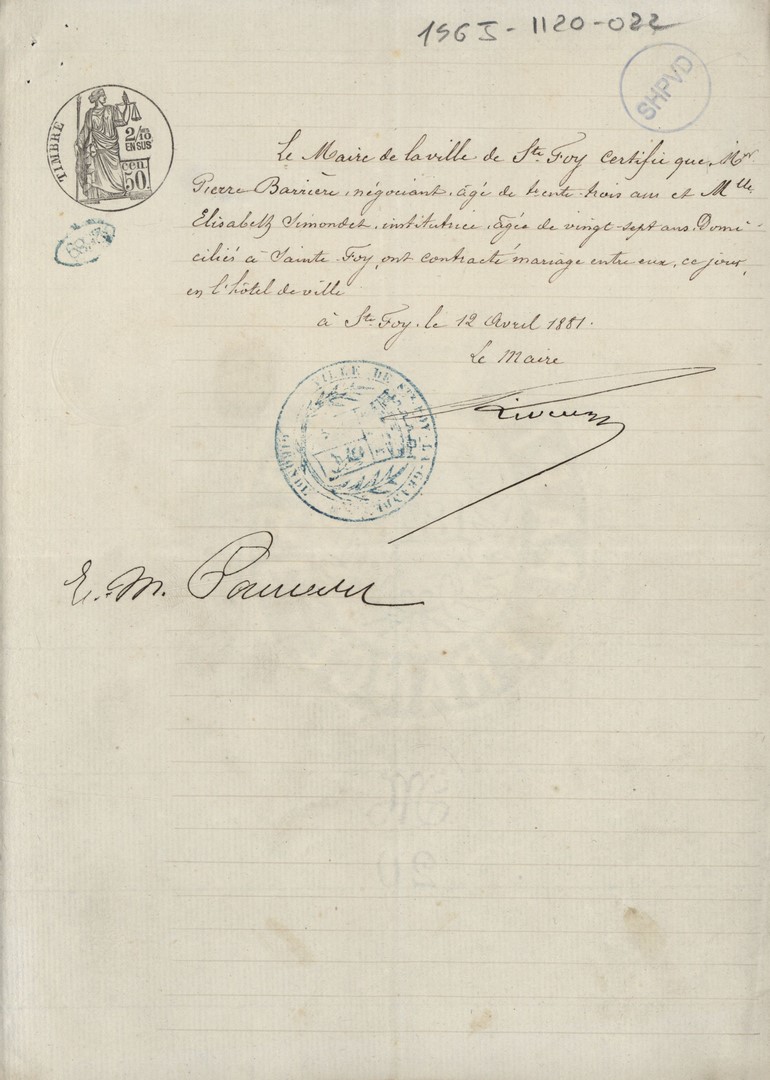 196J-1120-022
SHPVD
TIMBRE
2/10es
EN SUS
cen.
50
Le Maire de la ville de Ste Foy certifie que Mr
Pierre Barrière, négociant, âgé de trente-trois ans et Mlle
Elisabeth Simondet, institutrice, âgée de vingt-sept ans. Domi-
ciliés à Sainte Foy, ont contracté mariage entre eux, ce jour,
en l'hôtel de ville
à Ste Foy, le 12 Avril 1881.
Le Maire
VILLE DE STE FOY-LA-GRANDE
GIRONDE
E. M.